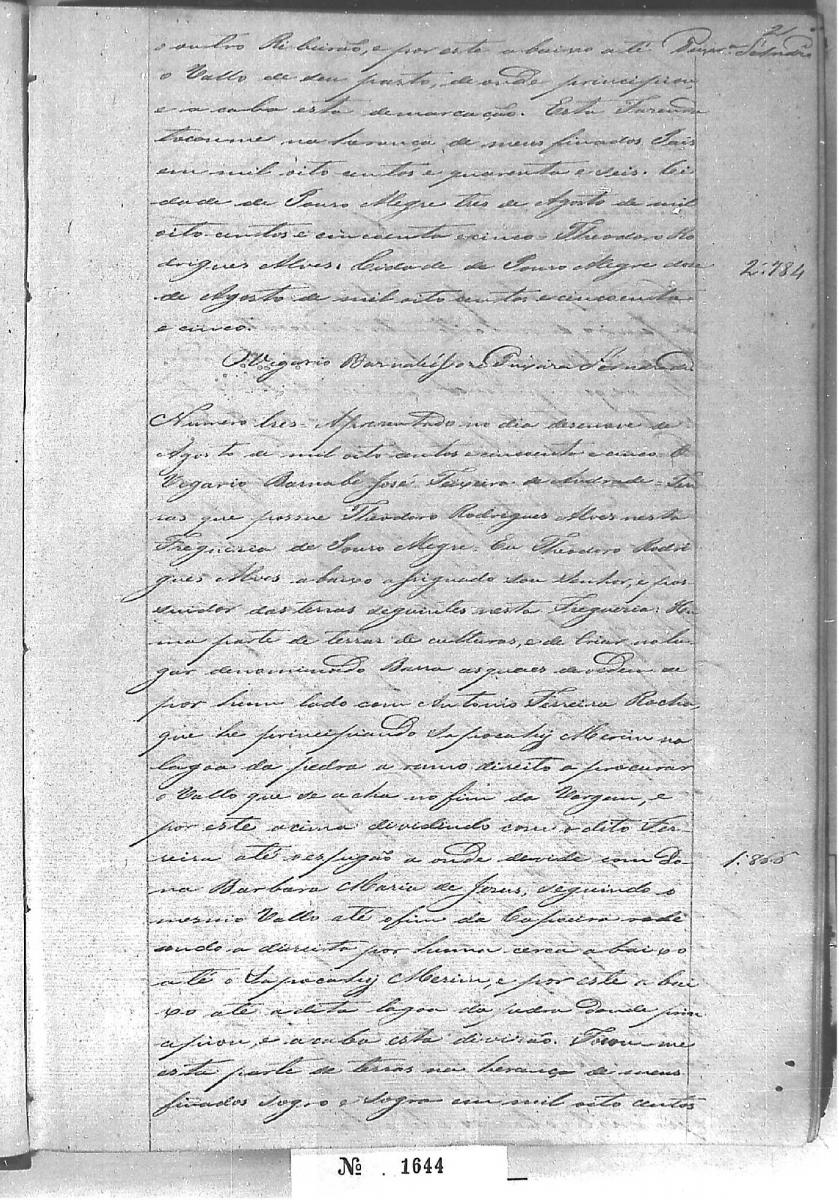 2
o outro Ribeirão, e por este abaixo até
o Vallo de deu parto, de onde principiou,
e acaba esta demarcação. Esta Fazenda
tocoume na herança de meus finados Pais
em mil oito centos e quarenta e seis. Ci
dade de Pouro Alegre tres de Agosto de mil
oito centos e cincoenta e cinco. Theodoro Ro
drigues Alves. Cidade de Pouro Alegre doze
de Agosto de mil oito centos e cincoenta
e cinco.
O Vegario Barnabé José Teixera
Numero tres. Apresentado no dia desenove de
Agosto de mil oito centos e cincoenta e cinco. O
Vegario Barnabe José Teixera de Andrade. Ter
ras que possue Theodoro Rodrigues Alves nesta
Fregueria de Pouro Alegre. Eu Theodoro Rodri
gues Alves abaixo asignado sou senhor, e pos
suidor das terras seguintes nesta Fregueria: Hu
ma parte de terras de culturas, e de Criar no lu
gar denominado Barra as quaes devidem se
por hum lado com Antonio Ferreira Rocha,
que he principiando Sapocahy Merim na
lagoa da pedra a rumo direito a procurar
o Vallo que se acha no fim da Vargem, e
por este acima devidindo com o dito Fer
reira até o espigão a onde devide com Do
na Barbara Maria de Jezus, seguindo o
mesmo Vallo até o fim da Capoeira rode
ando a direita por huma cerca abaixo
até o Sapocahy Merim, e por este abai
xo até a dita lagoa da pedra donde prin
cipiou, e acaba esta divisão. Tocou-me
esta parte de terras na herança de meus
finados sogro e sogra em mil oito centos
2:784
1:866
Nº 1644